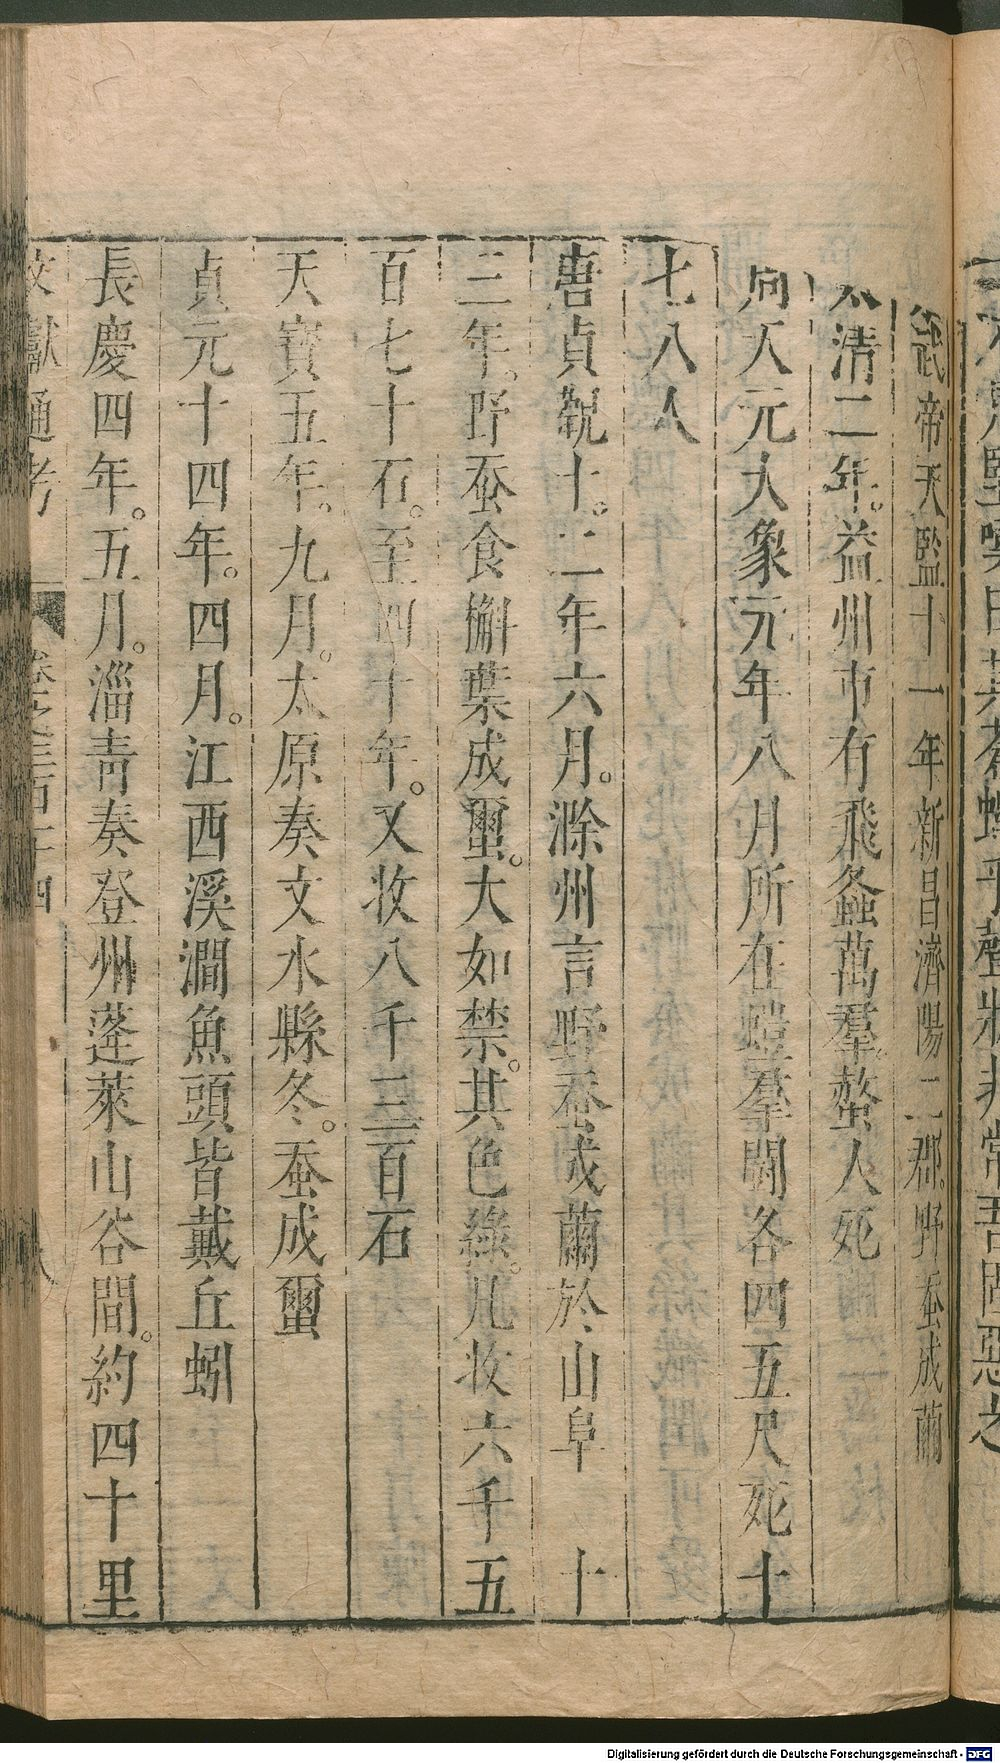 武帝天監十一年新昌濟陽二郡野蚕成繭
太清二年益州市有飛蟲萬羣螫人死
周大元大象元年八月所在蟻羣鬭各四五尺死十
七八人
唐貞觀十二年六月滁州言野蚕成繭於山阜 十
三年野蚕食槲葉成䌳大如柰其色綠凡收六千五
百七十石至四十年又收八千三百石
天寶五年九月太原奏文水縣冬蚕成䌳
貞元十四年四月江西溪澗魚頭皆戴丘蚓
長慶四年五月淄青奏登州蓬萊山谷間約四十里
文獻通考 卷之三百十四 八
Digitalisierung gefördert durch die Deutsche Forschungsgemeinschaft - DFG